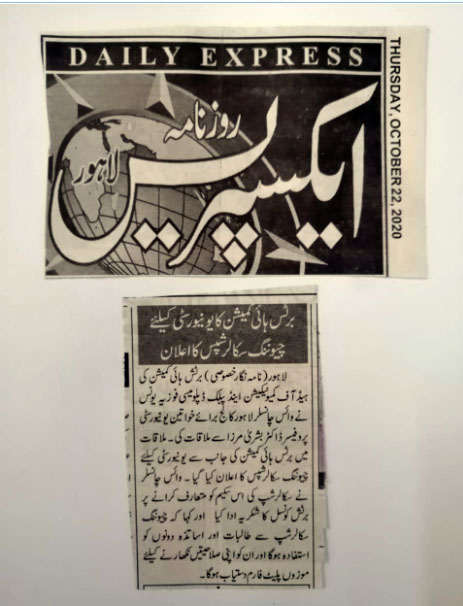 DAILY EXPRESS
THURSDAY, OCTOBER 22, 2020
روزنامہ
ایکسپریس
لاہور
برٹش ہائی کمیشن کا یونیورسٹی کیلئے
چیوننگ سکالرشپس کا اعلان
لاہور (نامہ نگار خصوصی) برٹش ہائی کمیشن کی
ہیڈ آف کمیونیکیشن اینڈ پبلک ڈپلومیسی فوزیہ یونس
نے وائس چانسلر لاہور کالج برائے خواتین یونیورسٹی
پروفیسر ڈاکٹر بشریٰ مرزا سے ملاقات کی۔ ملاقات
میں برٹش ہائی کمیشن کی جانب سے یونیورسٹی کیلئے
چیوننگ سکالرشپس کا اعلان کیا گیا۔ وائس چانسلر
نے سکالرشپ کی اس سکیم کو متعارف کرانے پر
برٹش کونسل کا شکریہ ادا کیا اور کہا کہ چیوننگ
سکالرشپ سے طالبات اور اساتذہ دونوں کو
استفادہ ہوگا اور ان کو اپنی صلاحیتیں نکھارنے کیلئے
موزوں پلیٹ فارم دستیاب ہوگا۔